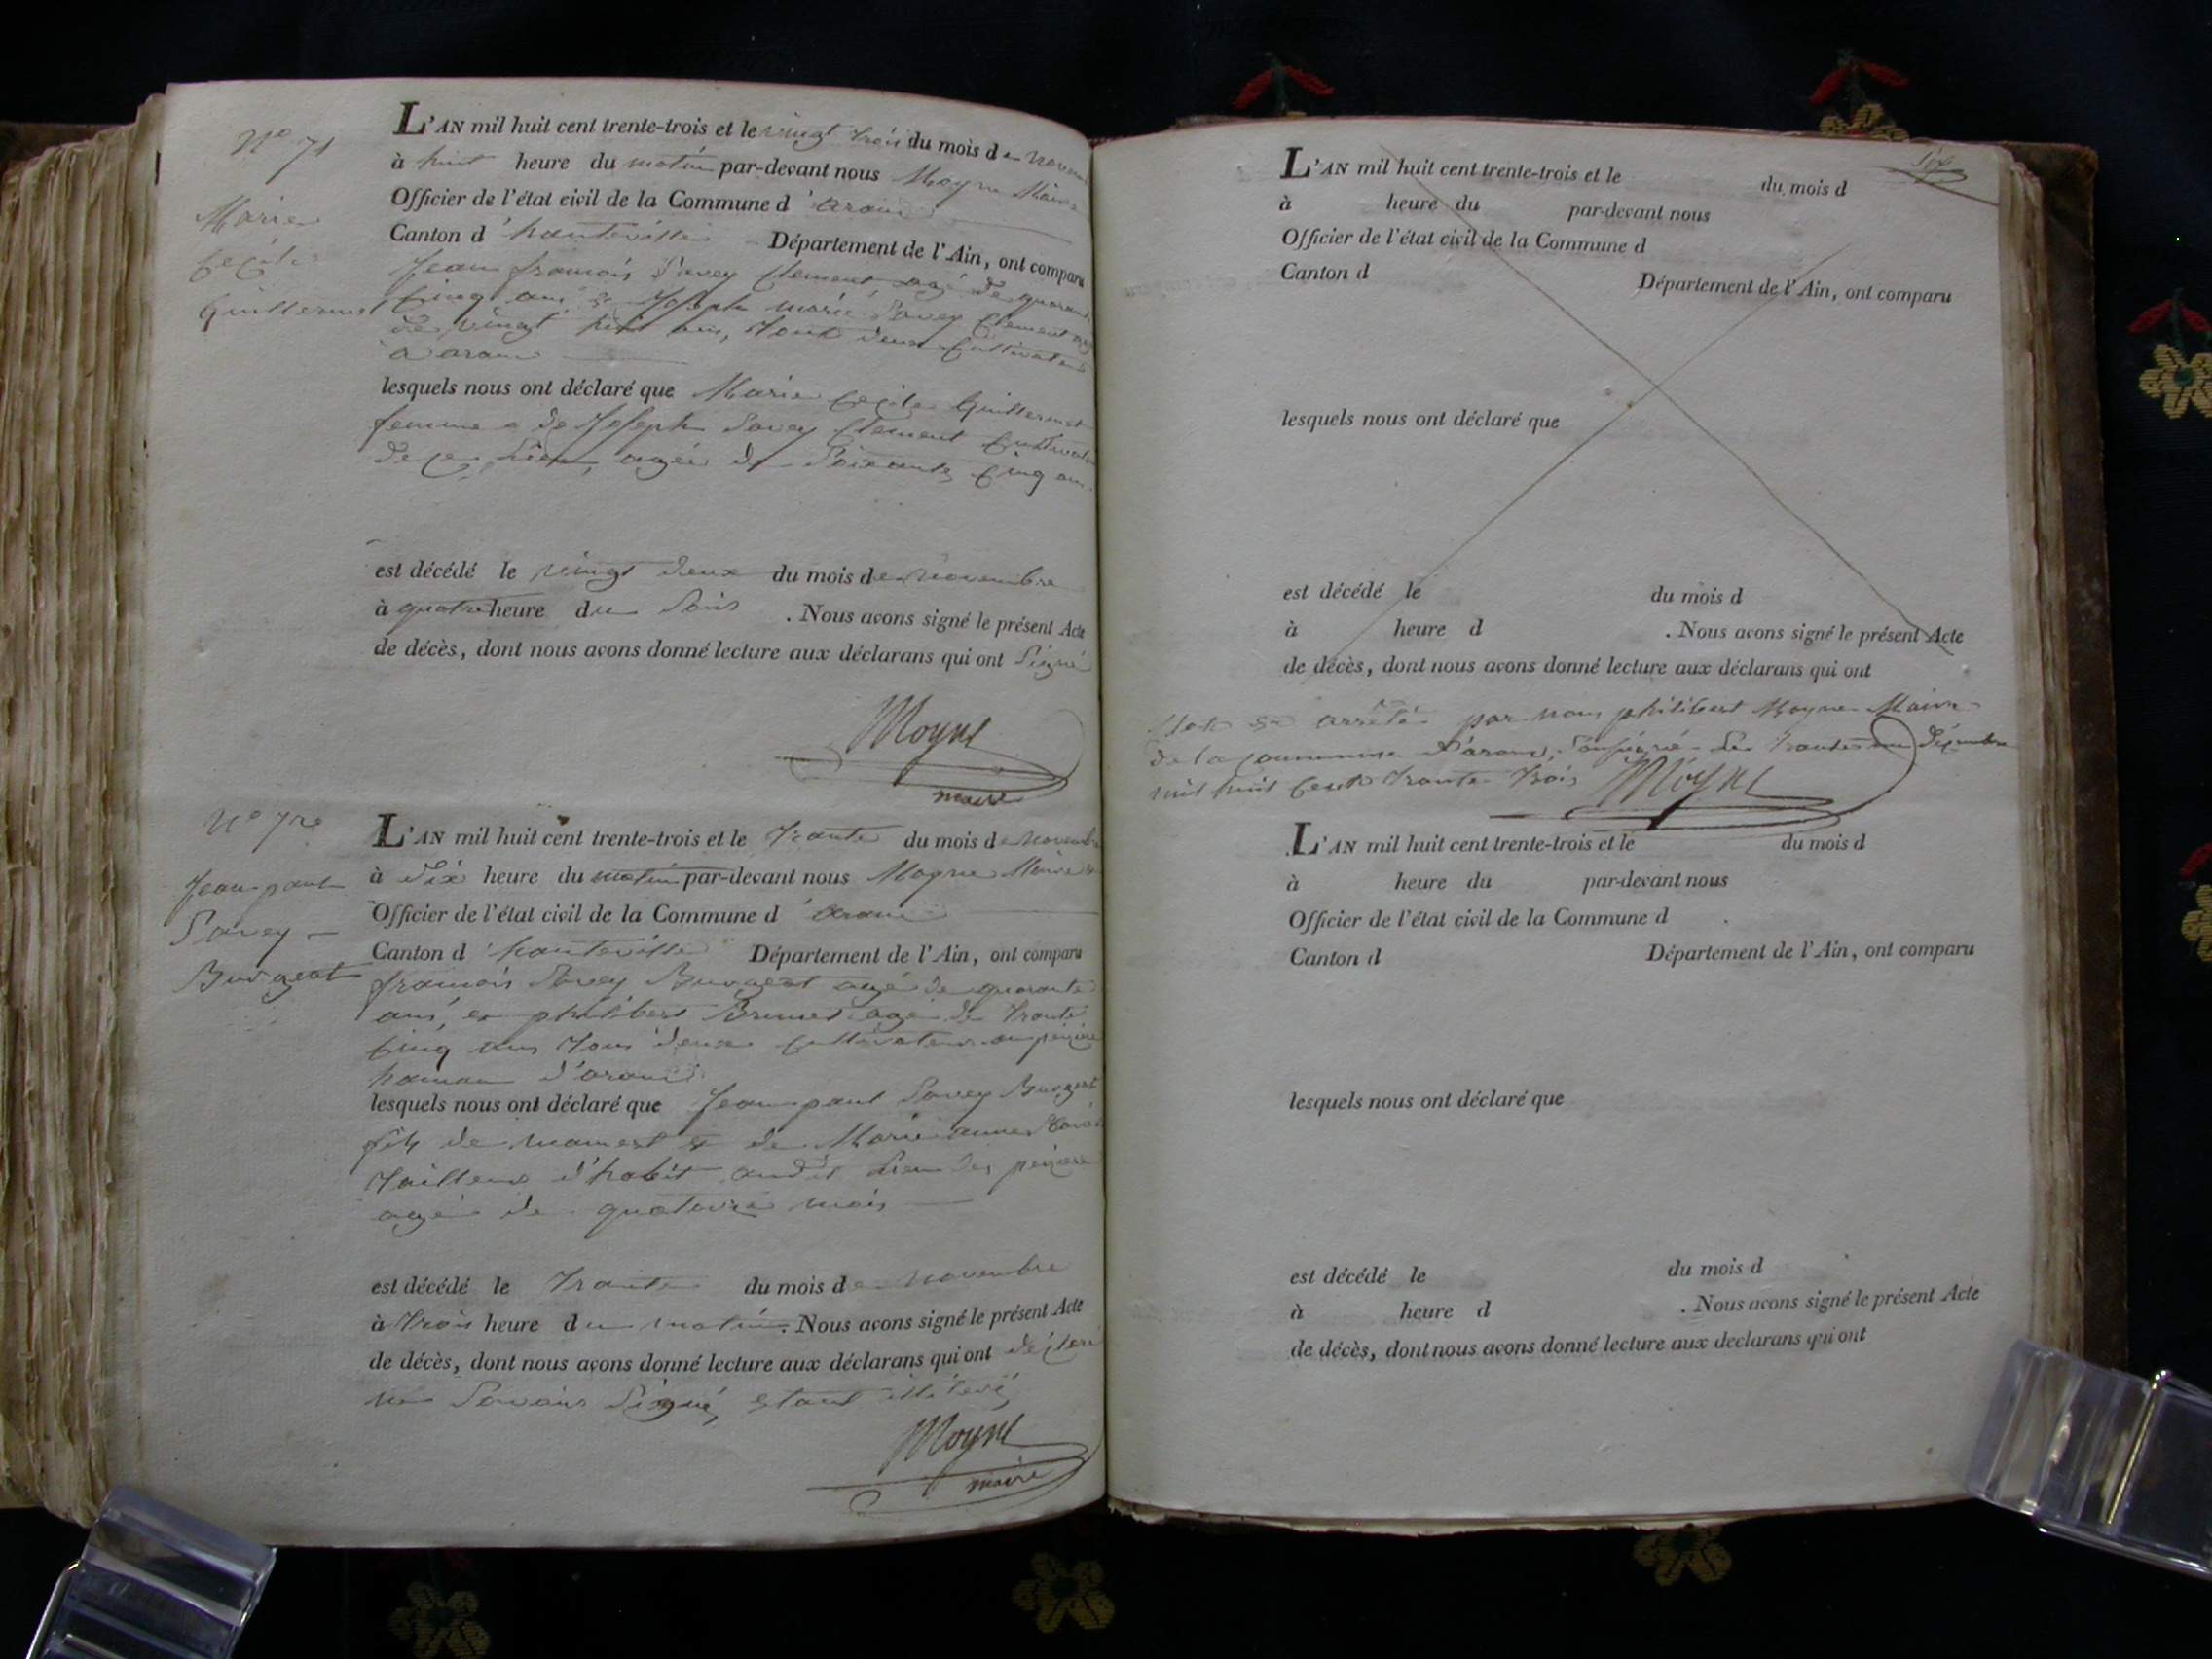 N° 71
Marie
Cecile
Guillermet
L'AN mil huit cent trente-trois et le vingt trois du mois de novem
à huit heure du matin par-devant nous Moyne Maire
Officier de l'état civil de la Commune d'aranc
Canton d'hauteville Département de l'Ain, ont comparu
Jean françois Savey Clement, agé de quarante
Cinq ans & Joseph marie Savey Clement agé
de vingt huit ans, tous deux Cultivateurs
à aranc
lesquels nous ont déclaré que Marie Cecile Guillermet
femme de Joseph Savey Clement Cultivateur
de ce lieu, agée de Soixante Cinq ans
est décédé le vingt deux du mois de novembre
à quatre heure du Soir . Nous avons signé le présent Acte
de décès, dont nous avons donné lecture aux déclarans qui ont Signé
Moyne
maire
N° 72
Jean paul
Savey
Burgeat
L'AN mil huit cent trente-trois et le trante du mois de novemb
à Dix heure du matin par-devant nous Moyne Maire &
Officier de l'état civil de la Commune d'aranc
Canton d'hauteville Département de l'Ain, ont comparu
françois Savey Burgeat agé de quarante
ans, et philibert agé de trante
Cinq ans tous deux Cultivateurs
hamau d'aranc
lesquels nous ont déclaré que Jean paul Savey Burgeat
fils de mamert & de Marie anne
tailleur d'habit audit lieu
agé de quatorze mois
est décédé le trante du mois de novembre
à trois heure du matin. Nous avons signé le présent Acte
de décès, dont nous avons donné lecture aux déclarans qui ont déclaré
ne Savoir Signé, etant
Moyne
maire
L'AN mil huit cent trente-trois et le du mois d
à heure du par-devant nous
Officier de l'état civil de la Commune d
Canton d Département de l'Ain, ont comparu
lesquels nous ont déclaré que
est décédé le du mois d
à heure d . Nous avons signé le présent Acte
de décès, dont nous avons donné lecture aux déclarans qui ont
arrêté par nous philibert Moyne Maire
de la Commune d'aranc, Soussigné Le trante un décembre
mil huit Cent trante trois Moyne
L'AN mil huit cent trente-trois et le du mois d
à heure du par-devant nous
Officier de l'état civil de la Commune d
Canton d Département de l'Ain, ont comparu
lesquels nous ont déclaré que
est décédé le du mois d
à heure d . Nous avons signé le présent Acte
de décès, dont nous avons donné lecture aux declarans qui ont